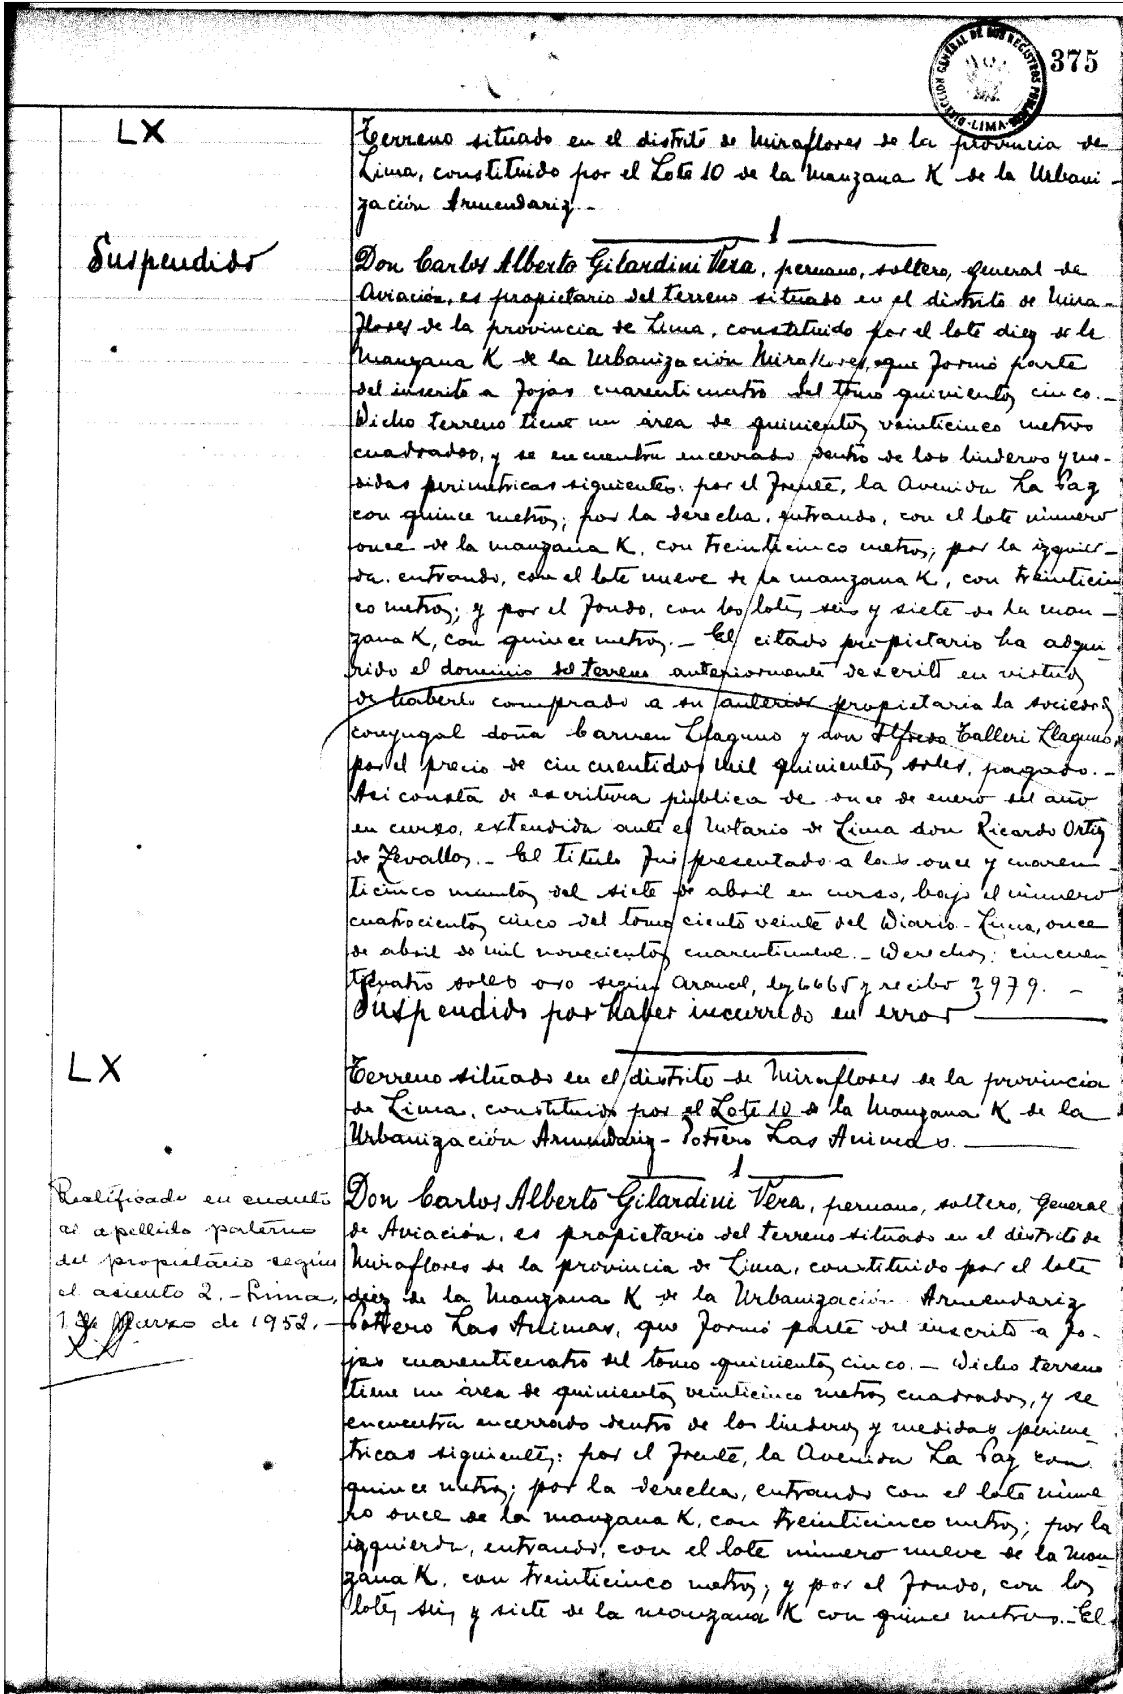 DIRECCION GENERAL DE LOS REGISTROS PUBLICOS
-LIMA-
375
LX
Terreno situado en el distrito de Miraflores de la provincia de
Lima, constituido por el Lote 10 de la Manzana K de la Urbani-
zación Armendariz.-
1
Suspendido
Don Carlos Alberto Gilardini Vera, peruano, soltero, general de
Aviación, es propietario del terreno situado en el distrito de Mira-
flores de la provincia de Lima, constituido por el lote diez de la
Manzana K de la Urbanización Miraflores, que formó parte
del inscrito a fojas cuarenticuatro del tomo quinientos cinco.-
Dicho terreno tiene un área de quinientos veinticinco metros
cuadrados, y se encuentra encerrado dentro de los linderos y me-
didas perimetricas siguientes: por el frente, la Avenida La Paz
con quince metros; por la derecha, entrando, con el lote número
once de la manzana K, con treinticinco metros; por la izquier-
da, entrando, con el lote nueve de la manzana K, con treinticin
co metros; y por el fondo, con los lotes seis y siete de la man-
zana K, con quince metros.- El citado propietario ha adqui-
rido el dominio del terreno anteriormente descrito en virtud
de haberlo comprado a su anterior propietaria la sociedad
conyugal doña Carmen Llaguno y don Alfredo Talleri Llaguno,
por el precio de cincuentidos mil quinientos soles, pagado.-
Asi consta de escritura pública de once de enero del año
en curso, extendida ante el Notario de Lima don Ricardo Ortiz
de Zevallos.- El título fué presentado a las once y cuaren-
ticinco minutos del siete de abril en curso, bajo el número
cuatrocientos cinco del tomo ciento veinte del Diario.- Lima, once
de abril de mil novecientos cuarentinueve.- Derechos: cincuen-
ticuatro soles oro según Arancel, ley 6665 y recibo 2979.-
Suspendido por haber incurrido en error
LX
Terreno situado en el distrito de Miraflores de la provincia
de Lima, constituido por el Lote 10 de la Manzana K de la
Urbanización Armendariz - Potrero Las Animas.
1
Rectificado en cuanto
al apellido paterno
del propietario según
el asiento 2.- Lima,
1º Marzo de 1952.-
Don Carlos Alberto Gilardini Vera, peruano, soltero, General
de Aviación, es propietario del terreno situado en el distrito de
Miraflores de la provincia de Lima, constituido por el lote
diez de la Manzana K de la Urbanización Armendariz
Potrero Las Animas, que formó parte del inscrito a fo-
jas cuarenticuatro del tomo quinientos cinco.- Dicho terreno
tiene un área de quinientos veinticinco metros cuadrados, y se
encuentra encerrado dentro de los linderos y medidas perime-
tricas siguientes: por el frente, la Avenida La Paz con
quince metros; por la derecha, entrando con el lote núme
ro once de la manzana K, con treinticinco metros; por la
izquierda, entrando, con el lote número nueve de la man
zana K, con treinticinco metros; y por el fondo, con los
lotes seis y siete de la manzana K con quince metros.- El